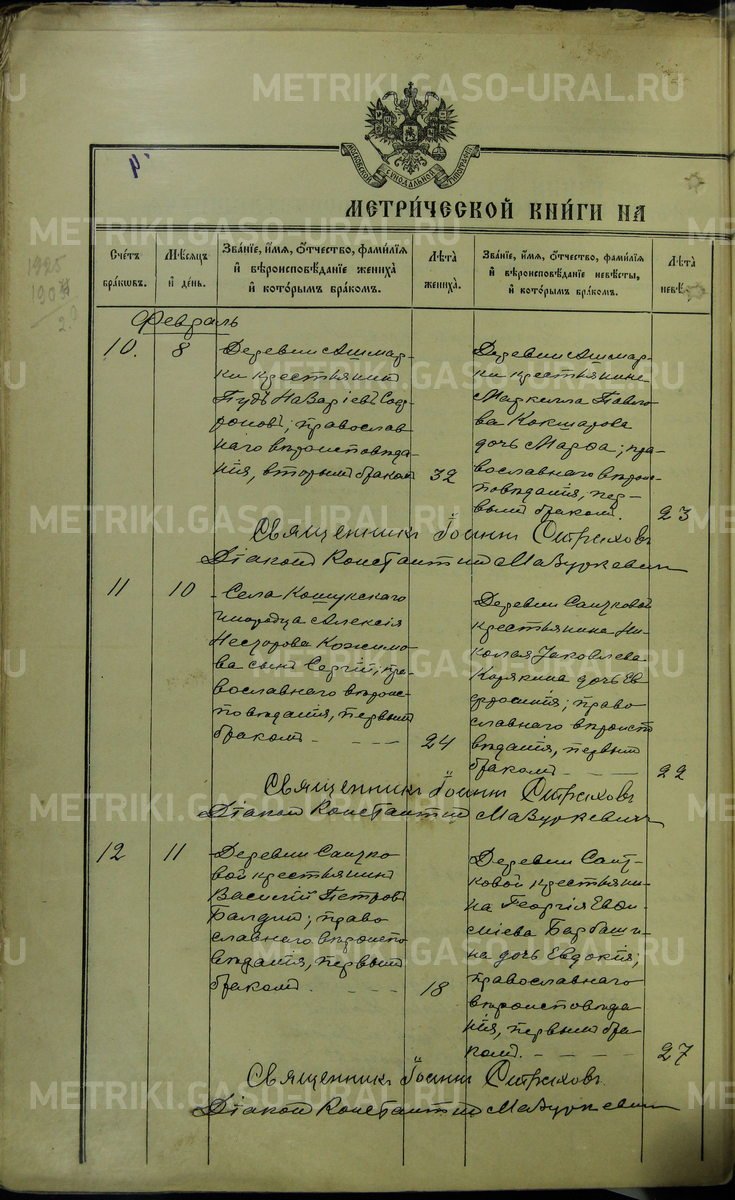 МОСКОВСКОЙ СѴНОДАЛЬНОЙ ТИПОГРАФІИ
МЕТРИ́ЧЕСКОЙ КНИ́ГИ НА
Сче́тъ бра́кѡвъ.
Мѣ́сѧцъ и҆ де́нь.
Зва́нїе, и҆́мѧ, ѻ҆́тчество, фами́лїѧ
и҆ вѣроисповѣ́данїе жениха̀
и҆ кото́рымъ бра́комъ.
Лѣ́та жениха̀.
Зва́нїе, и҆́мѧ, ѻ҆́тчество, фами́лїѧ
и҆ вѣроисповѣ́данїе невѣ́сты,
и҆ кото́рымъ бра́комъ.
Лѣ́та
1925
Февраль
10.
8
Деревни Ашмар-
ки крестьянинъ
Пудъ Назаріевъ Соф-
роновъ; православ
наго вѣроисповѣда
нія, вторымъ бракомъ
32
Деревни Ашмар-
ки крестьянина
Маркелла Павло
ва Кокшарова
дочь Марѳа; пра-
вославнаго вѣроис-
повѣданія, пер-
вымъ бракомъ.
23
Священникъ Іоаннъ Стриховъ
Діаконъ Константинъ Мазуркевичъ
11
10
Села Кошукскаго
инородца Алексія
Несторова Кожимо-
ва сынъ Сергій; пра-
вославнаго вѣроис-
повѣданія, первымъ
бракомъ
24
Деревни Саитковой
крестьянина Ни-
колая Іаковлева
Корякина дочь Ев
фросинія; право
славнаго вѣроиспо
вѣданія, первымъ
бракомъ
22
Священникъ Іоаннъ Стриховъ
Діаконъ Константинъ Мазуркевичъ
12
11
Деревни Саитко
вой крестьянинъ
Василій Петровъ
Балдинъ; право
славнаго вѣроиспо
вѣданія, первымъ
бракомъ
18
Деревни Саит-
ковой крестьяни-
на Георгія Евѳи-
міева Барбаши-
на дочь Евдокія;
православнаго
вѣроисповѣда
нія, первымъ бра-
комъ.
27
Священникъ Іоаннъ Стриховъ
Діаконъ Константинъ Мазуркевичъ
METRIKI.GASO-URAL.RU